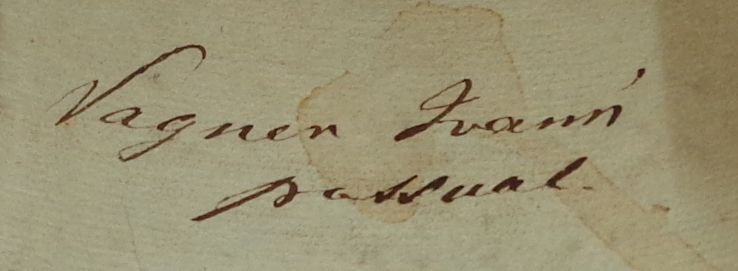 Vagner Ivann
passual.